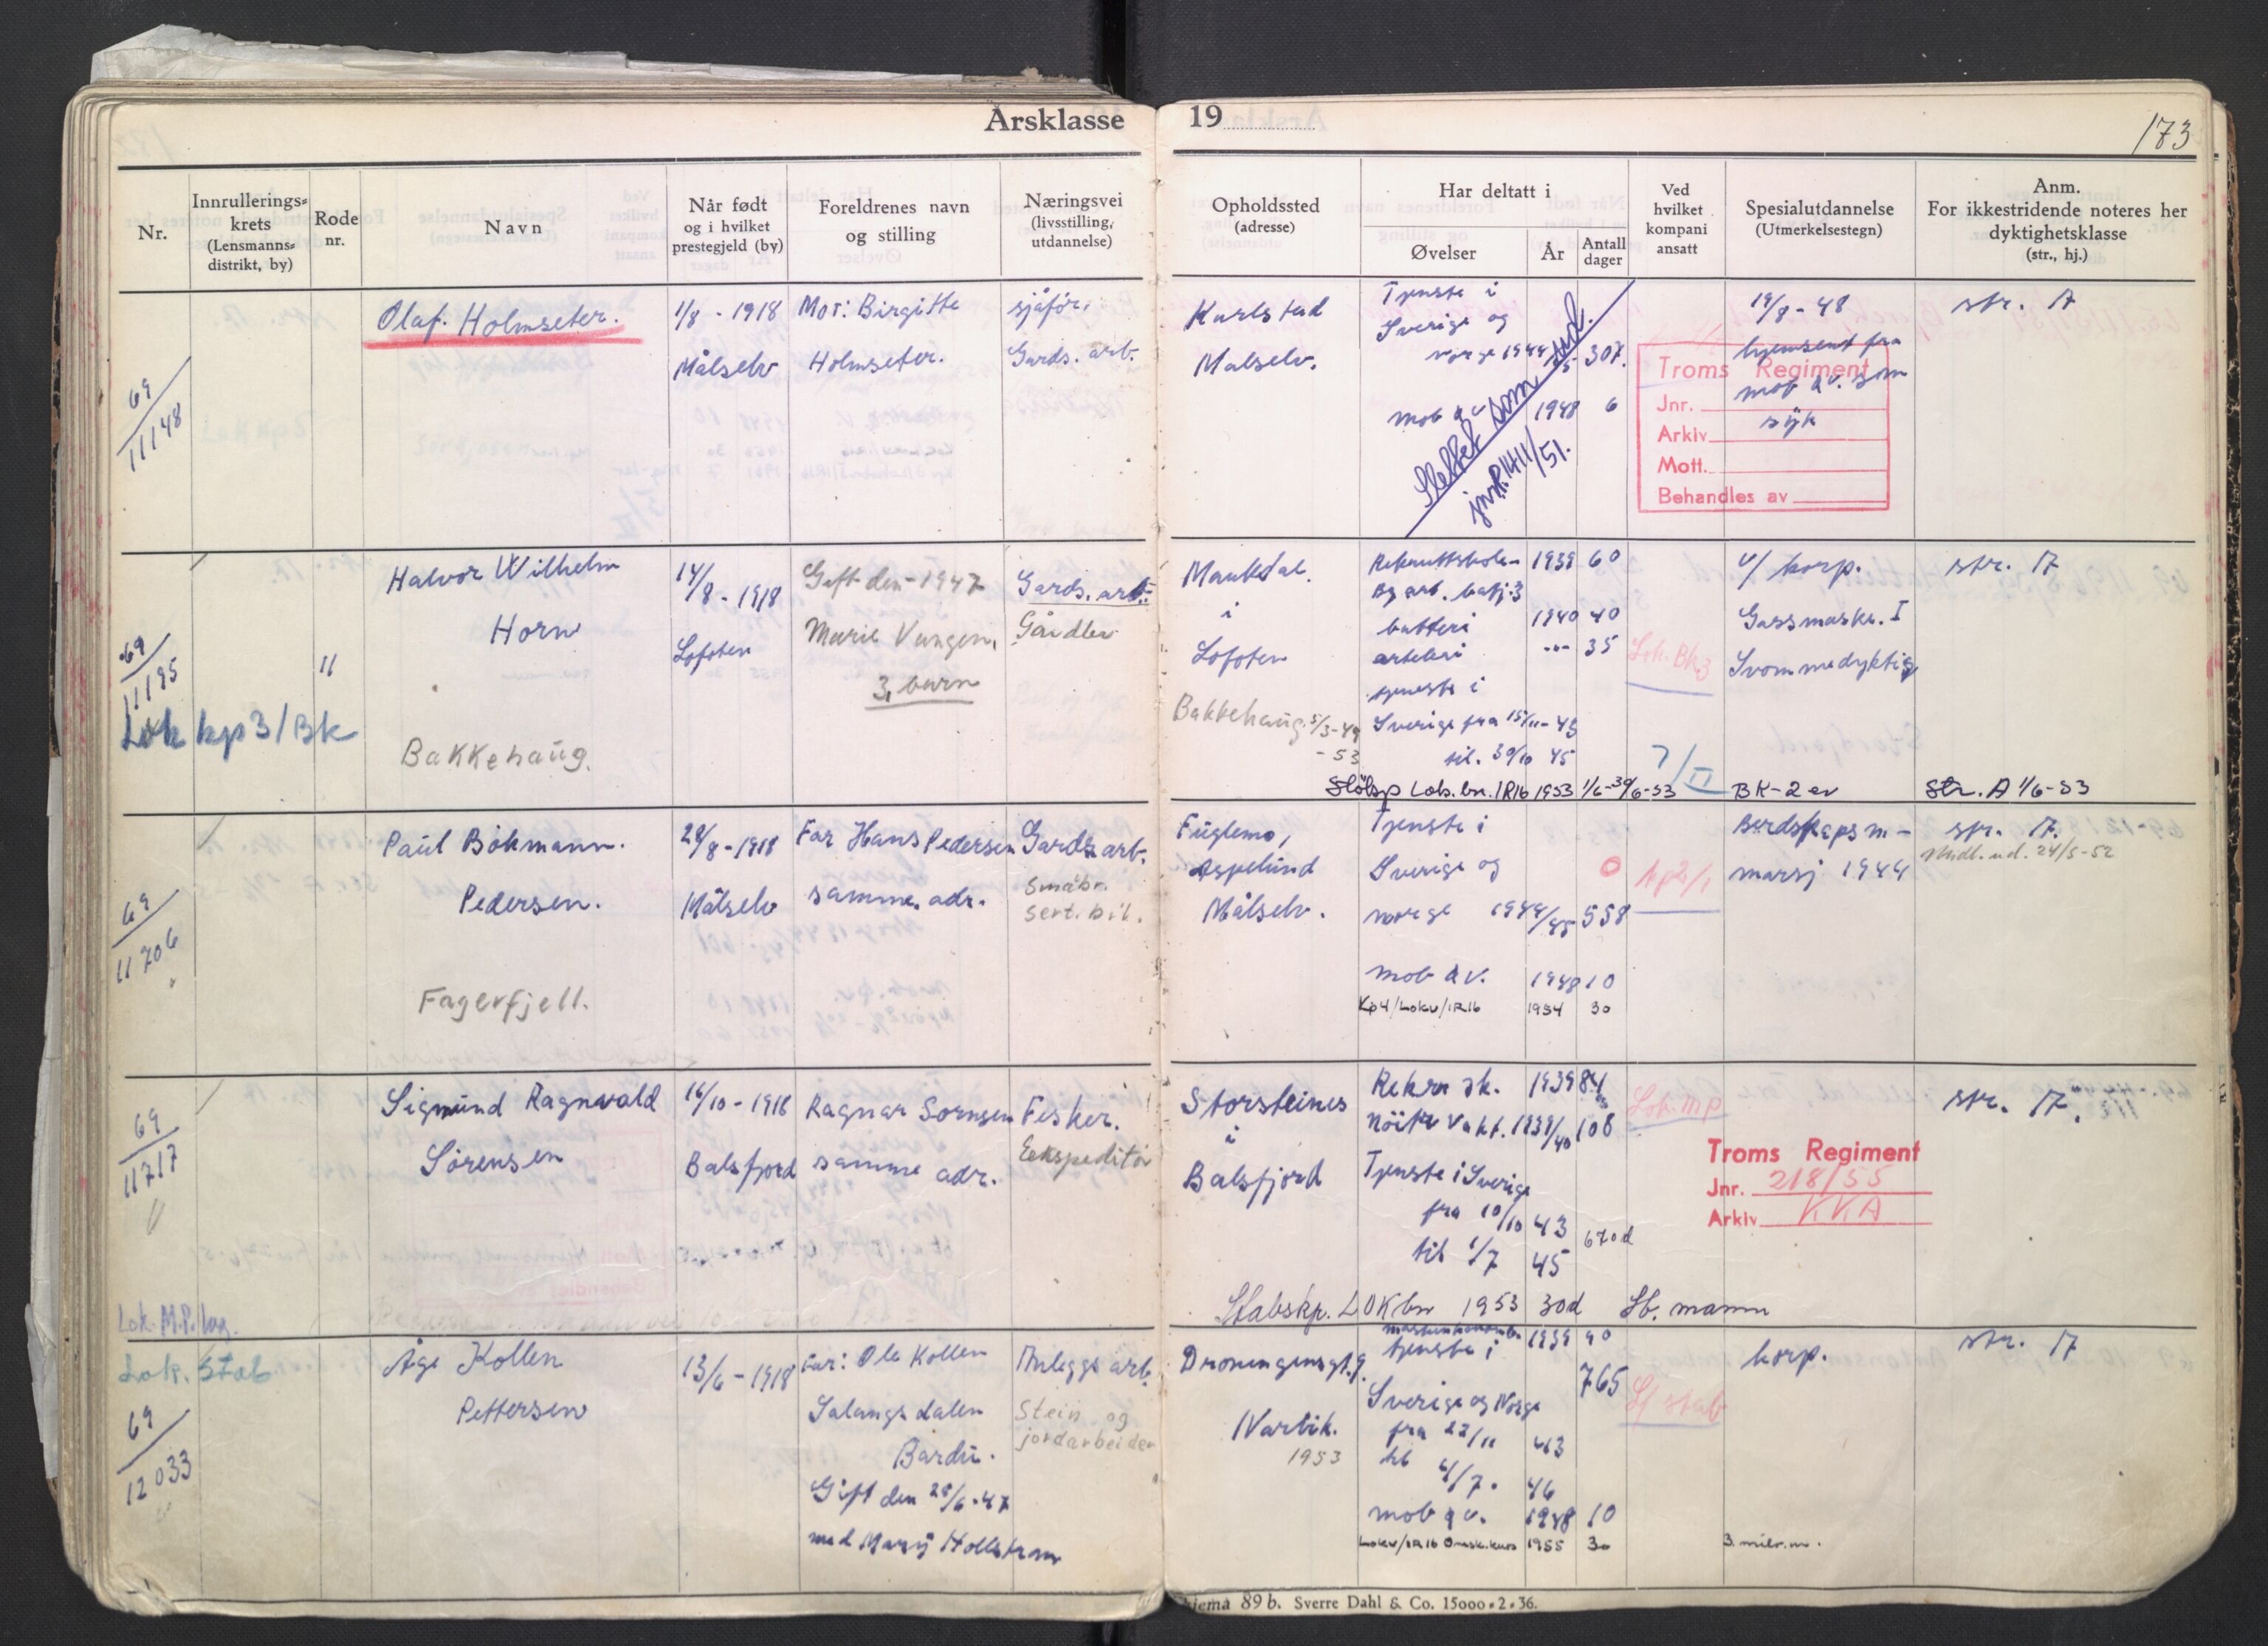 Årsklasse 19
173
Nr.
Innrullerings=
krets
(Lensmanns=
distrikt, by)
Rode
nr.
Navn
Når født
og i hvilket
prestegjeld (by)
Foreldrenes navn
og stilling
Næringsvei
(livsstilling,
utdannelse)
Opholdssted
(adresse)
Har deltatt i
Øvelser
År
Antall
dager
Ved
hvilket
kompani
ansatt
Spesialutdannelse
(Utmerkelsestegn)
Anm.
For ikkestridende noteres her
dyktighetsklasse
(str., hj.)
69
11148
Olaf. Holmseter.
1/8 - 1918
Målselv
Mor: Birgitte
Holmseter.
sjåfør.
Gards. arb.
Karlstad
Målselv.
Tjenste i
Sverige og
norge 1944/45 307.
mob av 1948 6
Slettet som
jnr. 1411/51.
19/8 - 48
hjemsent fra
mob av. som
syk
Troms Regiment
Jnr.
Arkiv
Mott.
Behandles av
str. A
69
11195
Lok kp 3/Bk
11
Halvor Wilhelm
Horn
Bakkehaug.
14/8 - 1918
Lofoten
Gift den - 1947
Marie Vangen,
3 barn
Gards. arb.
Gårdbr
Maukdal
i
Lofoten
Bakkehaug. 5/3-49
- 53
Rekruttskole 1939 60
Bg art. batj. 3
batteri 1940 40
arteleri -"- 35
tjeneste i
Sverige fra 15/11 - 43
til. 30/10 45
Lok. bn. IR16 1953 1/6-30/6-53
Lok. Bk 3
7/II
v/ korp.
Gassmaskr. I
Svømmedyktig
BK-2er
str. A
Str. A 1/6-53
69
11706
Paul Bokmann.
Pedersen.
Fagerfjell.
28/8 - 1918
Målselv
Far Hans Pedersen
samme. adr.
Gards arb.
Småbr.
sert. bil.
Fuglemo,
Aspelund
Målselv.
Tjenste i
Sverige og
norge 1944/45 558
mob av. 1948 10
Kp4/Lokv/IR16 1954 30
0
Berdskapsm-
marsj 1944
str. A.
24/5-52
69
11717
Lok. M.P. lag.
Sigmund Ragnvald
Sørensen
16/10 - 1918
Balsfjord
Ragnar Sørnsen
samme adr.
Fesker.
Eekspeditør
Storsteines
i
Balsfjord
Rekru sk. 1939 84
Nøitr Vakt. 1939/40 108
Tjenste i Sverige
fra 10/10 43
til 1/7 45
670 d
Stabskp. LOKbn 1953 30d St. mann
Lok. MP
Troms Regiment
Jnr. 218/55
Arkiv KKA
str. A.
Lok. Stab
69
12033
Åge Kollen
Pettersen
13/6 - 1918
Far: Ole Kollen
Salangsdalen
Bardu.
Gift den 28/6-47
med Mary Hollstrøm
Anleggs arb.
Stein og
jordarbeider
Droningensgt. 9.
Narvik.
1953
1939 90
tjenste i
Sverige og Norge 765
fra 22/11 43
til 4/7. 46
mob av. 1948 10
Lokv/IR16 Omsk.kurs 1955 30
S/ stab
korp.
3. milr.m.
str. A
89 b. Sverre Dahl & Co. 15000=2=36.